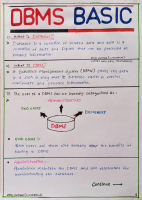 DBMS BASIC
1) What is Database?
* Database is a collection of related data and data is a
collection of facts and figures that can be processed to
produce information.
2) What is DBMS?
* A Database Management System (DBMS) stores the data
in such a way that it becomes easier to retrieve,
manipulate and produce information.
3) The users of a DBMS can be broadly categorized as:
ADMINISTRATORS
END USERS
DESIGNERS
DBMS
* End users:
End users are those who actually reap the benefits of
having a DBMS.
* Administrators:
maintain the DBMS and are responsible for
administrating the database.
Continue